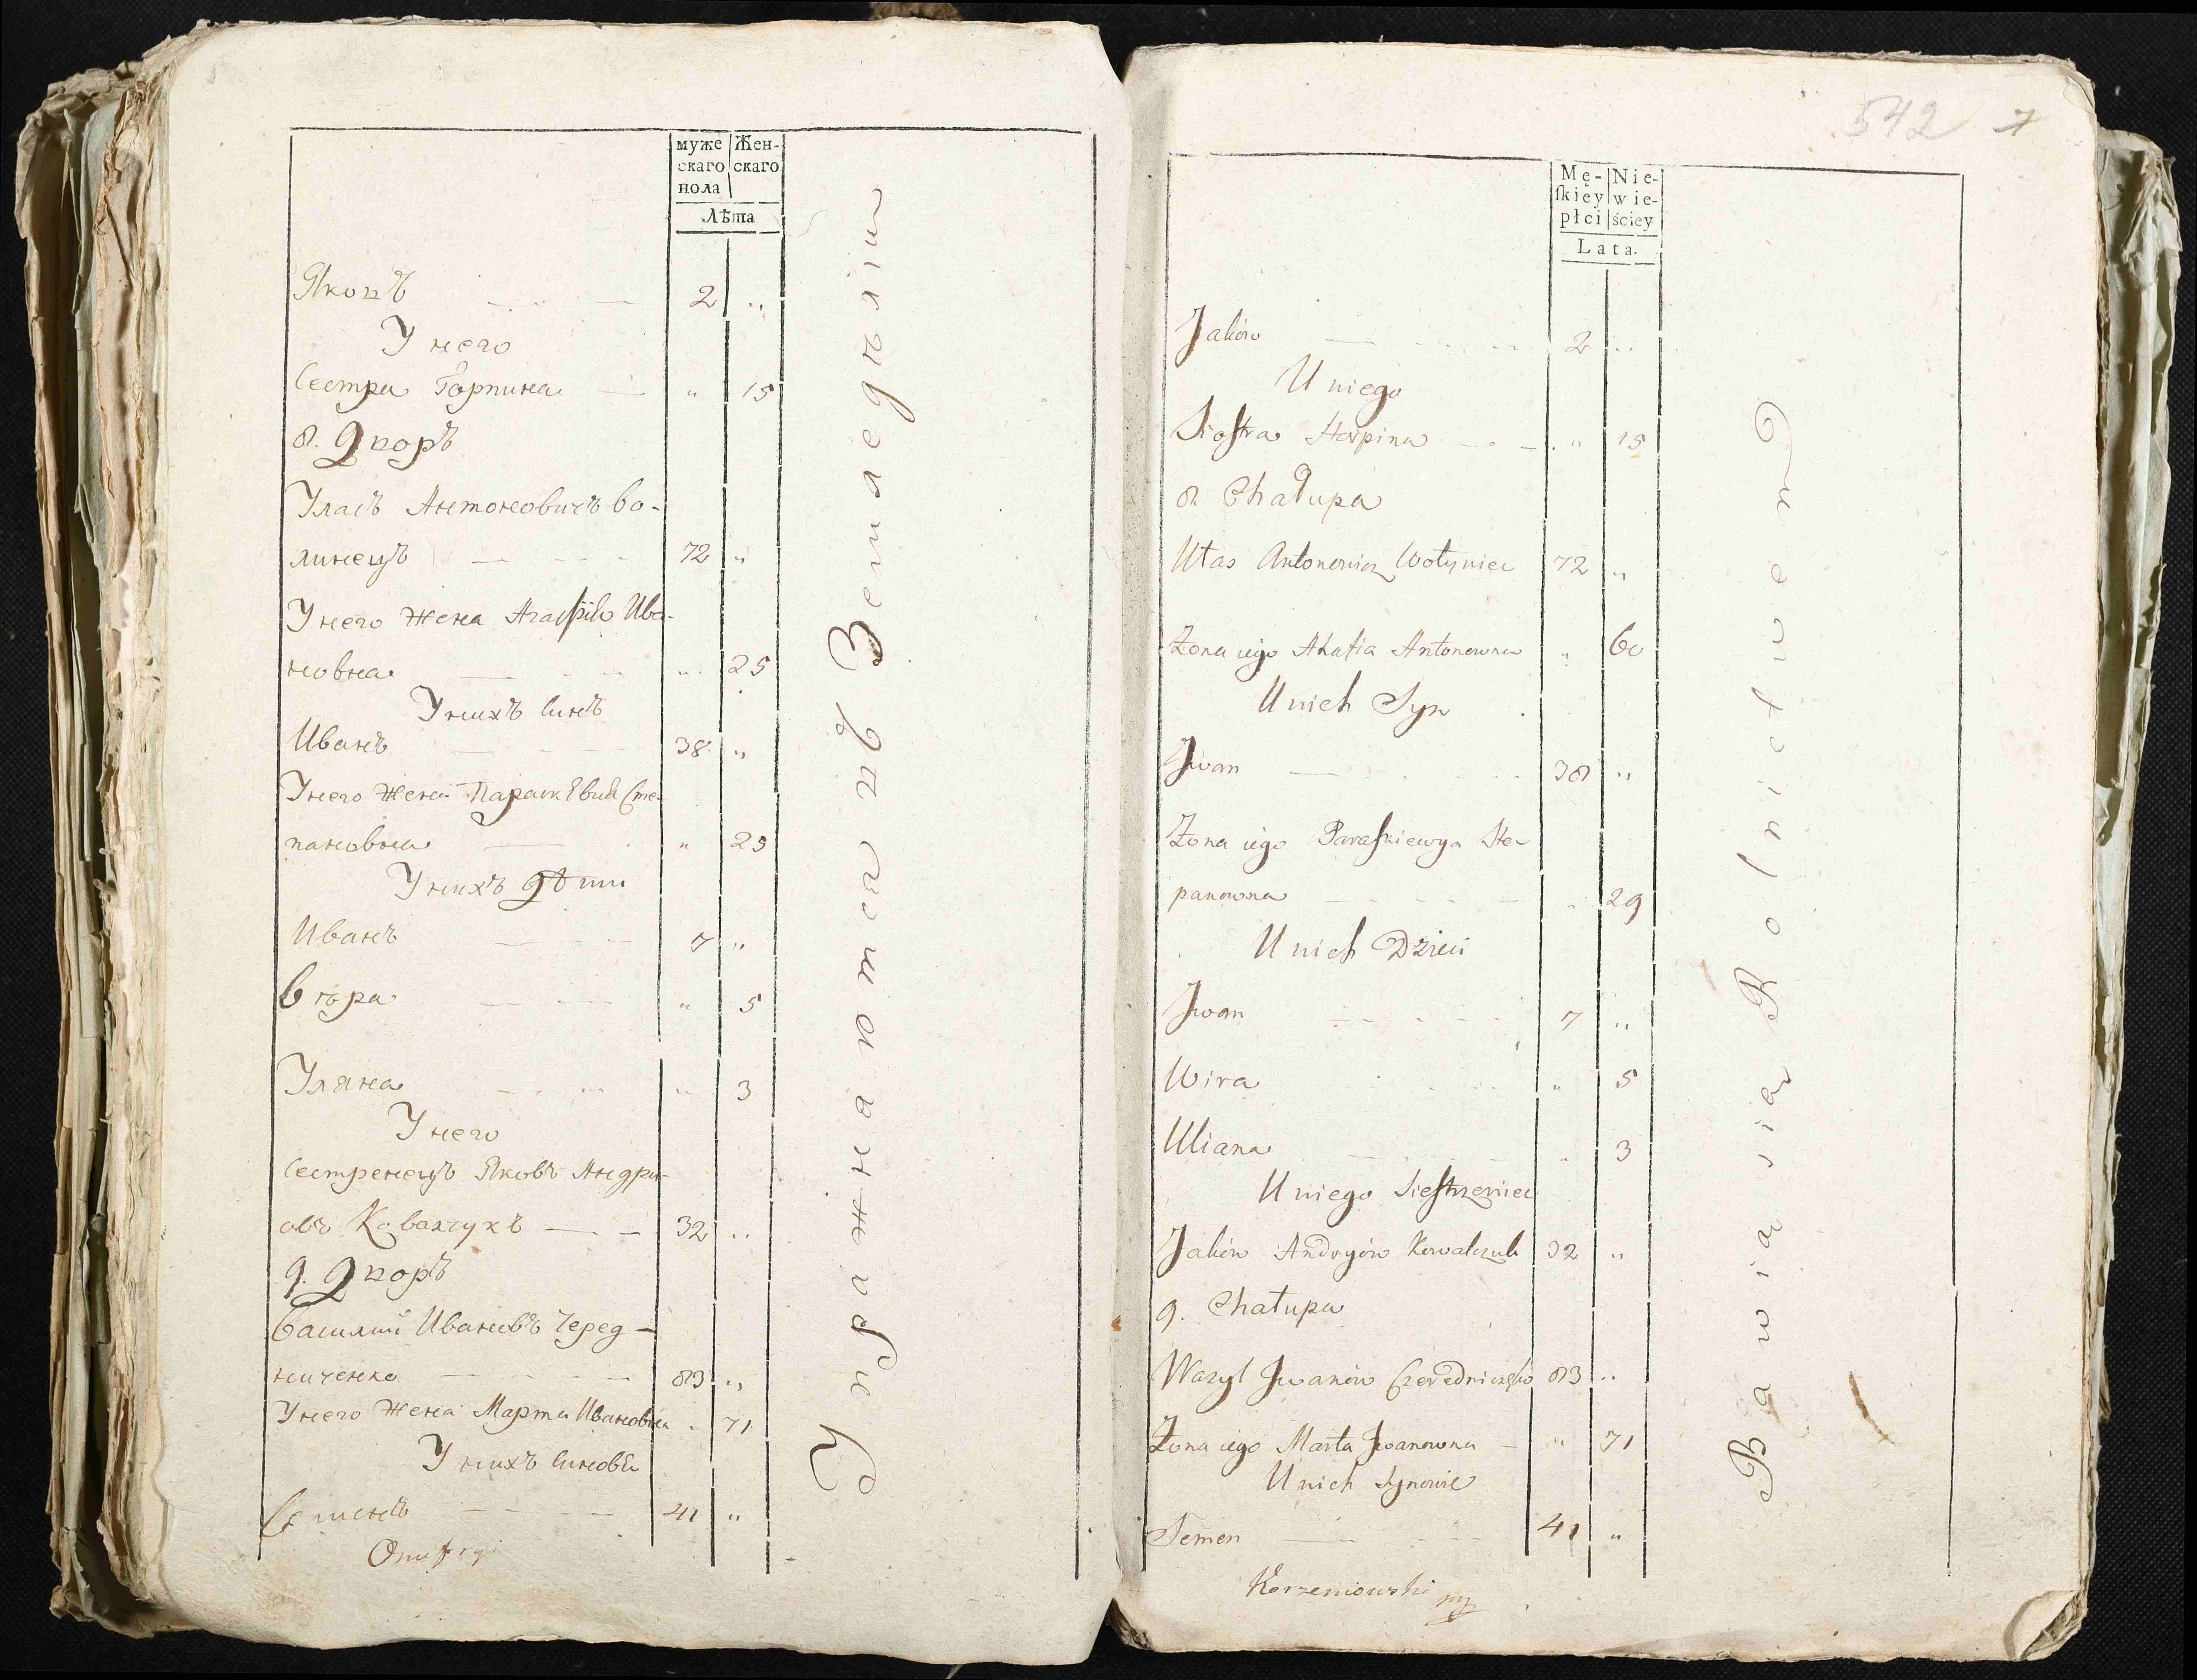 муже
скаго
пола
Жен-
скаго
Лѣта
Яковъ 2 „
У него
Сестра Горпина „ 15
8. Дворъ
Уласъ Антоновичъ Во-
линецъ 72 „
У него жена Агафія Ива-
новна „ 25
У нихъ Синъ
Иванъ 38 „
У него жена Парасковія Сте-
пановна „ 29
У нихъ дѣти
Иванъ 7 „
Вѣра „ 5
Уляна „ 3
У него
Сестренецъ Яковъ Андри-
овъ Ковалчукъ 32 „
9. Дворъ
Василий Ивановъ Черед-
ниченко 83 „
У него жена Марта Ивановна „ 71
У нихъ Синовѣ
Семенъ 41 „
Onufry
Упражнаются въ Земледѣлiи
542 7
Mę-
skiey
płci
Nie-
wie-
ściey
Lata.
Jaków 2 „
U niego
Siostra Horpina „ 15
8. Chałupa
Ułas Antonowicz Wołyniec 72 „
Żona iego Ahafia Antonowna „ 60
U nich Syn
Jwan 38 „
Żona iego Paraskiewya Ste-
panowna „ 29
U nich Dzieci
Jwan 7 „
Wira „ 5
Uliana „ 3
U niego Siestrzeniec
Jaków Andryiów Kowalczuk 32 „
9. Chałupa
Wazyl Jwanów Czeredniczenko 83 „
Żona iego Marta Jwanowna „ 71
U nich Synowie
Semen 41 „
Korzeniowski mp
Bawią się Rolnictwem